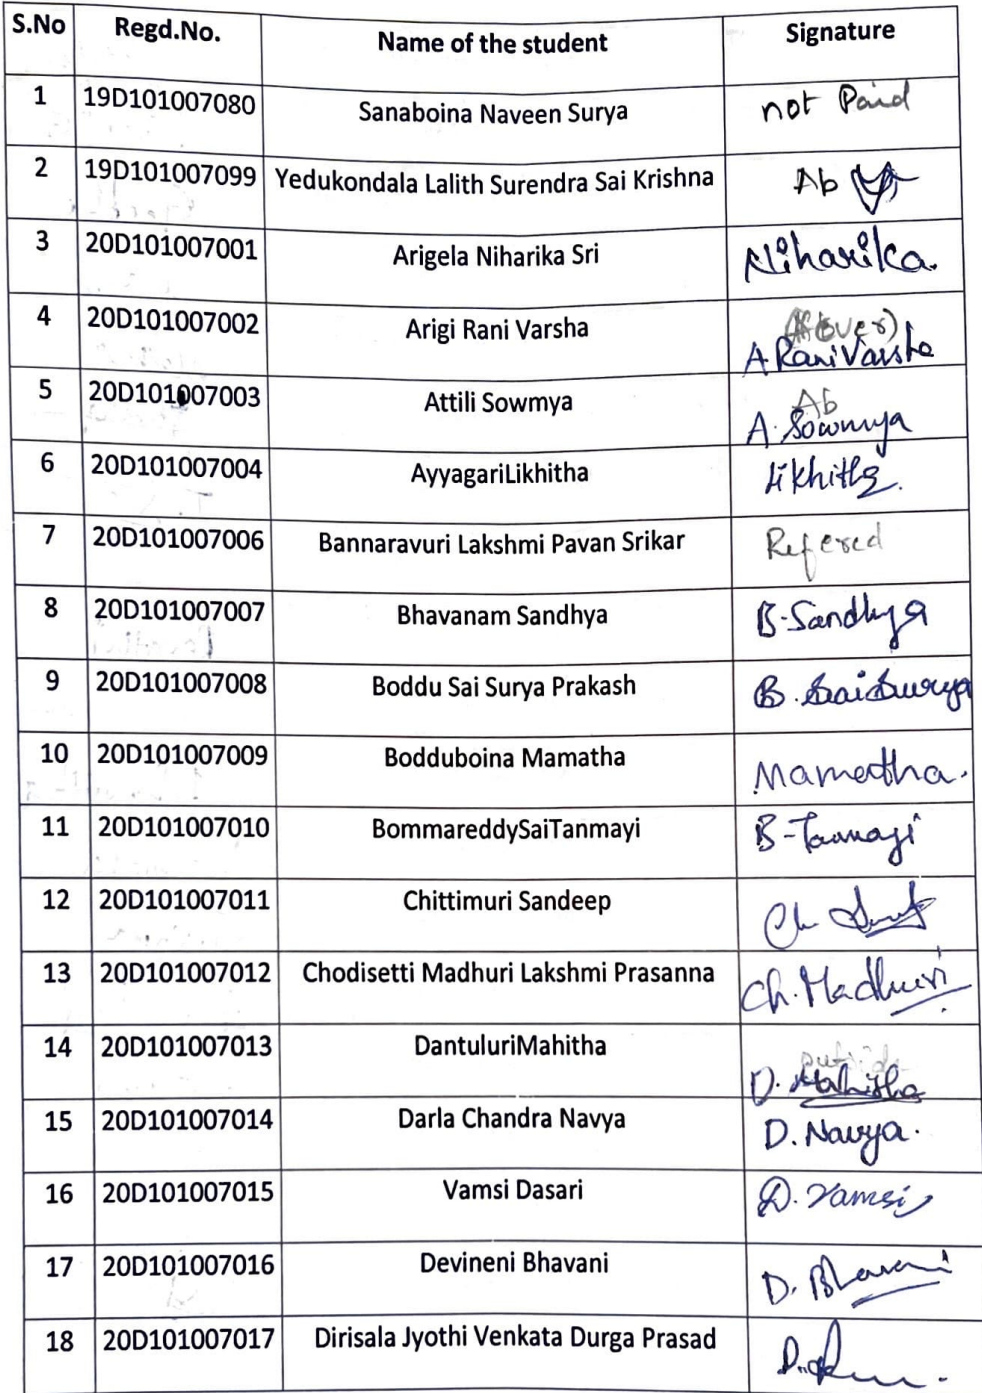 S.No Regd.No. Name of the student Signature
1 19D101007080 Sanaboina Naveen Surya not Paid
2 19D101007099 Yedukondala Lalith Surendra Sai Krishna Ab
3 20D101007001 Arigela Niharika Sri Niharika.
4 20D101007002 Arigi Rani Varsha
A Rani Varsha
5 20D101007003 Attili Sowmya Ab
A. Sowmya
6 20D101007004 AyyagariLikhitha Likhitha.
7 20D101007006 Bannaravuri Lakshmi Pavan Srikar Refered
8 20D101007007 Bhavanam Sandhya B-Sandhya
9 20D101007008 Boddu Sai Surya Prakash B. Sai Surya
10 20D101007009 Bodduboina Mamatha Mamatha.
11 20D101007010 BommareddySaiTanmayi B-Tanmayi
12 20D101007011 Chittimuri Sandeep Ch
13 20D101007012 Chodisetti Madhuri Lakshmi Prasanna Ch. Madhuri
14 20D101007013 DantuluriMahitha
D. Mahitha
15 20D101007014 Darla Chandra Navya D. Navya.
16 20D101007015 Vamsi Dasari D. Vamsi
17 20D101007016 Devineni Bhavani D. Bhavani
18 20D101007017 Dirisala Jyothi Venkata Durga Prasad